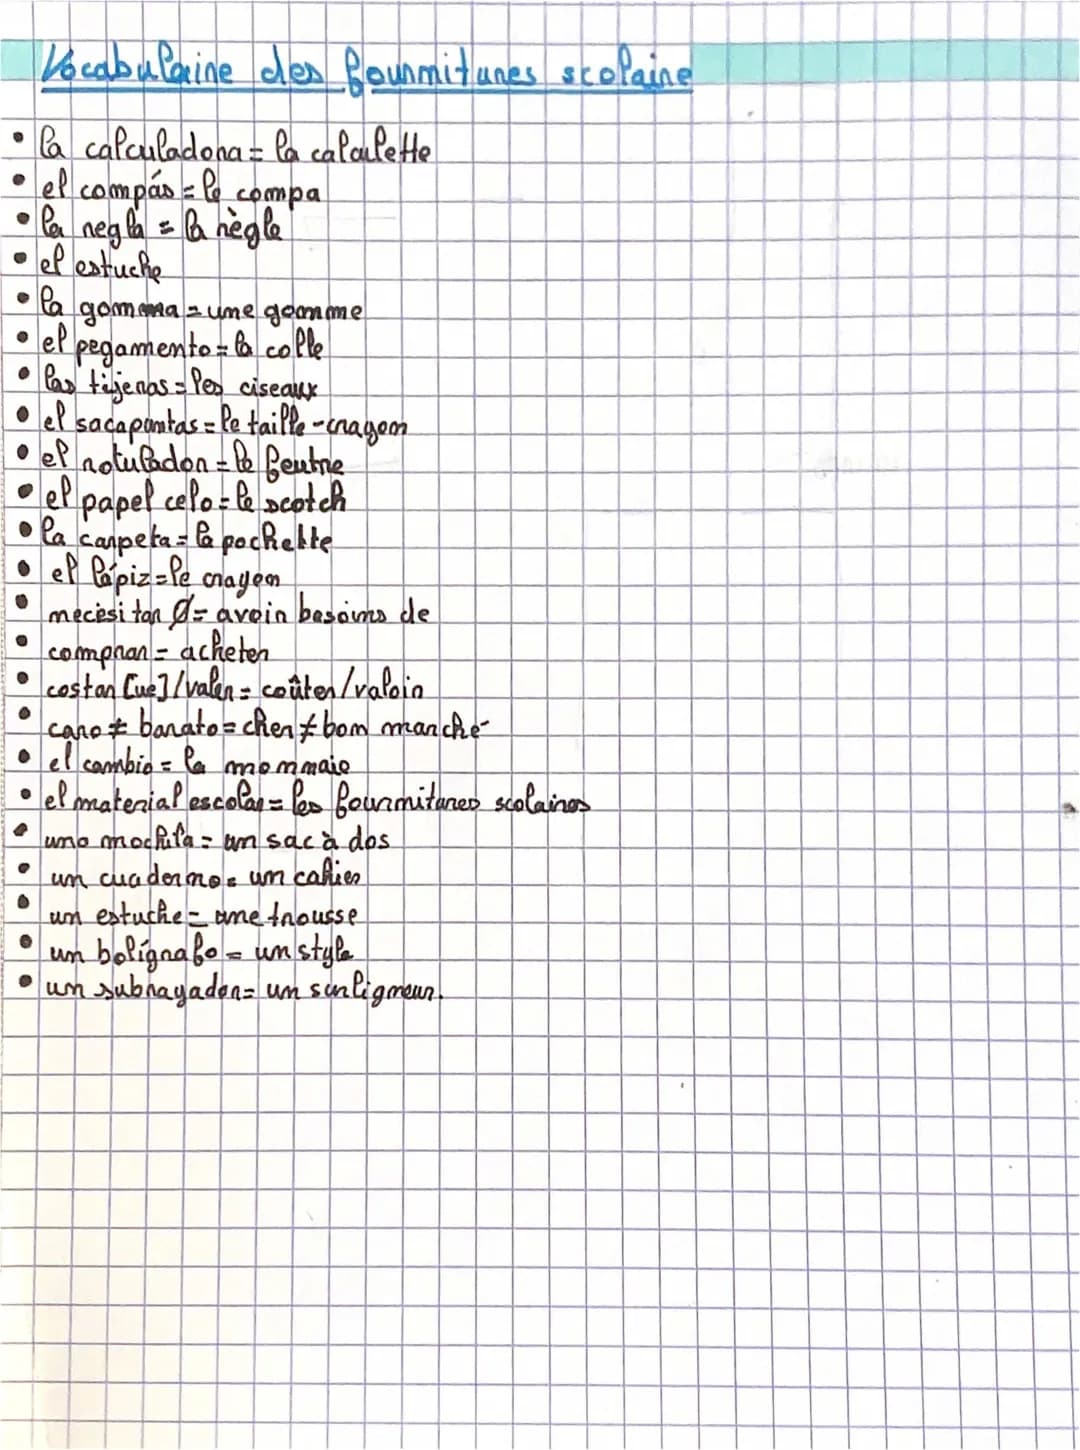 Vocabulaire des fournitures scolaire
• la calculadora = la calculette
• el compás = le compa
• la regla = la règle
• el estuche
• la gomma = une gomme
• el pegamento = la colle
• las tijeras = les ciseaux
• el sacapuntas = le taille-crayon
• el rotulador = le feutre
• el papel celo = le scotch
• la carpeta = la pochette
• el lápiz = le crayon
• necesitar Ø = avoir besoins de
• comprar = acheter
• costar [ue] / valer = coûter / valoir
• caro ≠ barato = cher ≠ bon marché
• el cambio = la monnaie
• el material escolar = les fournitures scolaires
• una mochila = un sac à dos
• un cuaderno = un cahier
• un estuche = une trousse
• un bolígrafo = un style
• un subrayador = un surligneur.